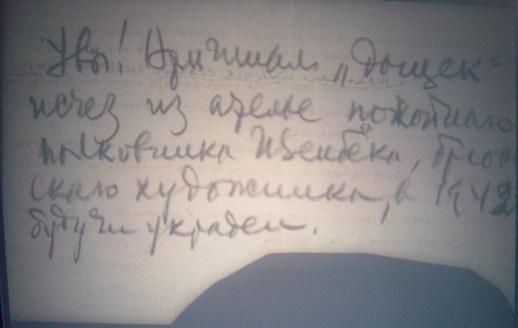 Увы! Оригинал „дощек"
исчез из ателье покойнаго
полковника Изенбека, брюс
скаго художника, в 1942
будучи украден.